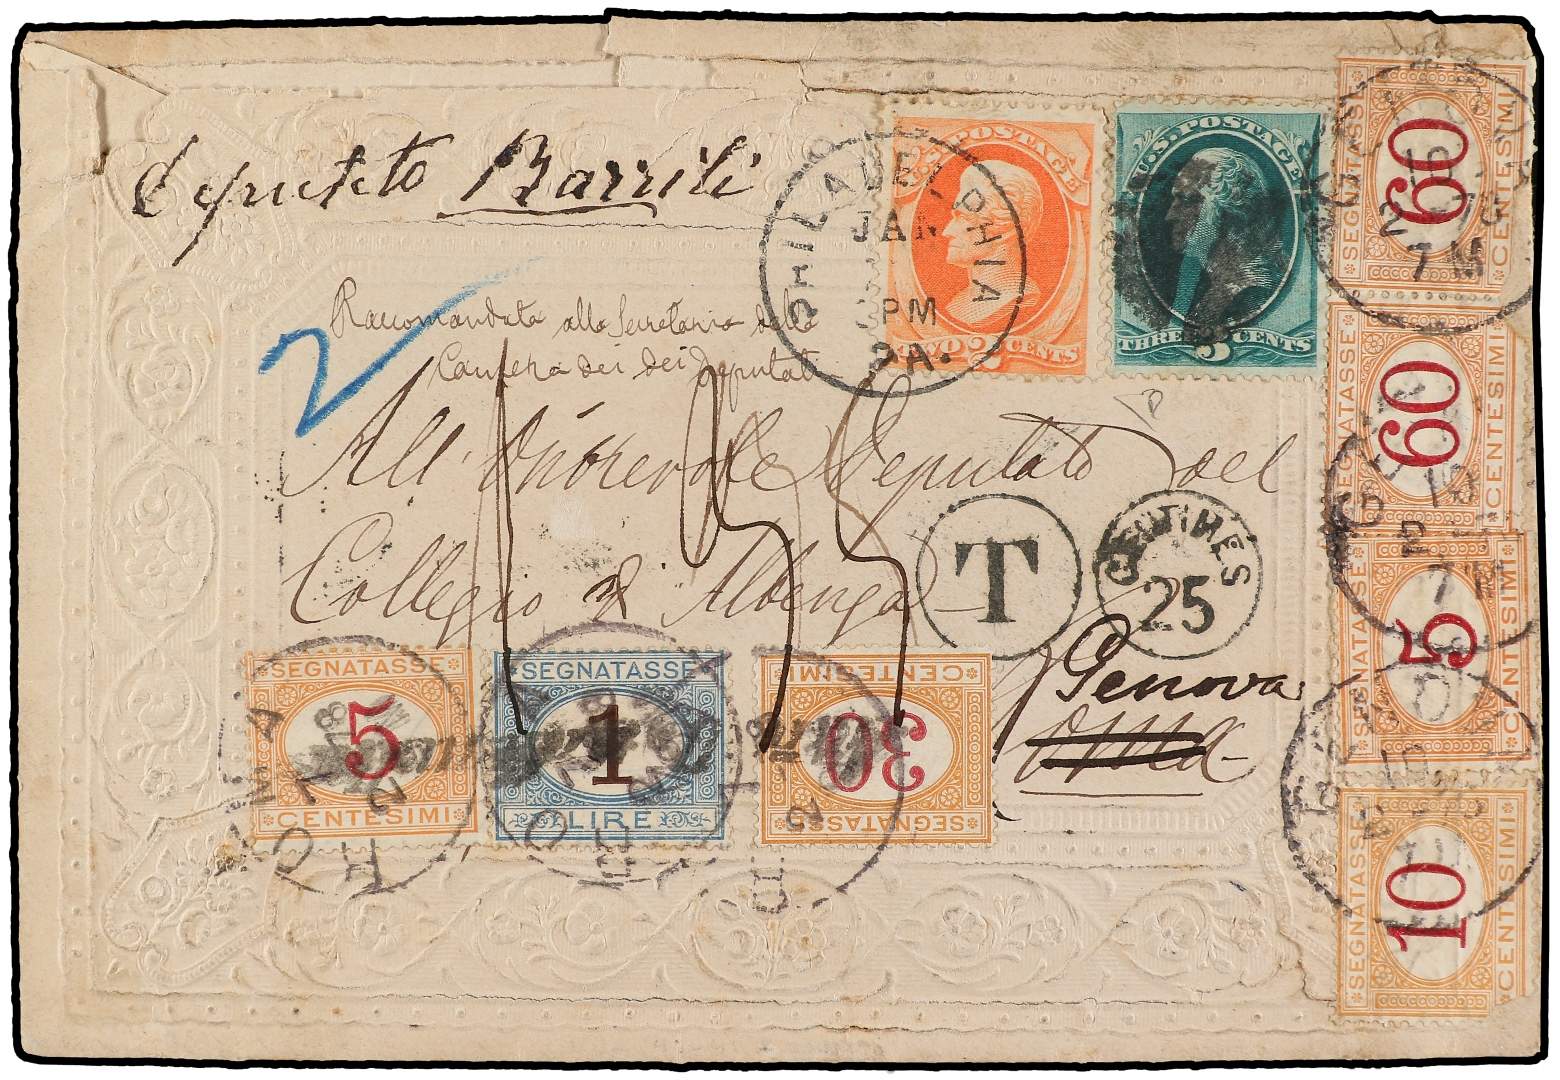 Deputato Barrili
2
Raccomandata alla Secretaria della
Camera dei dei Deputati
All'Onorevole Deputato del
Collegio di Albenga
Genova
T
CENTIMES
25
PHILADELPHIA
JAN
PM
PA.
U.S. POSTAGE
TWO 2 CENTS
U.S. POSTAGE
THREE 3 CENTS
SEGNATASSE
60
CENTESIMI
7 M
SEGNATASSE
60
CENTESIMI
7 M
SEGNATASSE
5
CENTESIMI
SEGNATASSE
10
CENTESIMI
SEGNATASSE
5
CENTESIMI
ROMA
SEGNATASSE
1
LIRE
SEGNATASSE
30
CENTESIMI